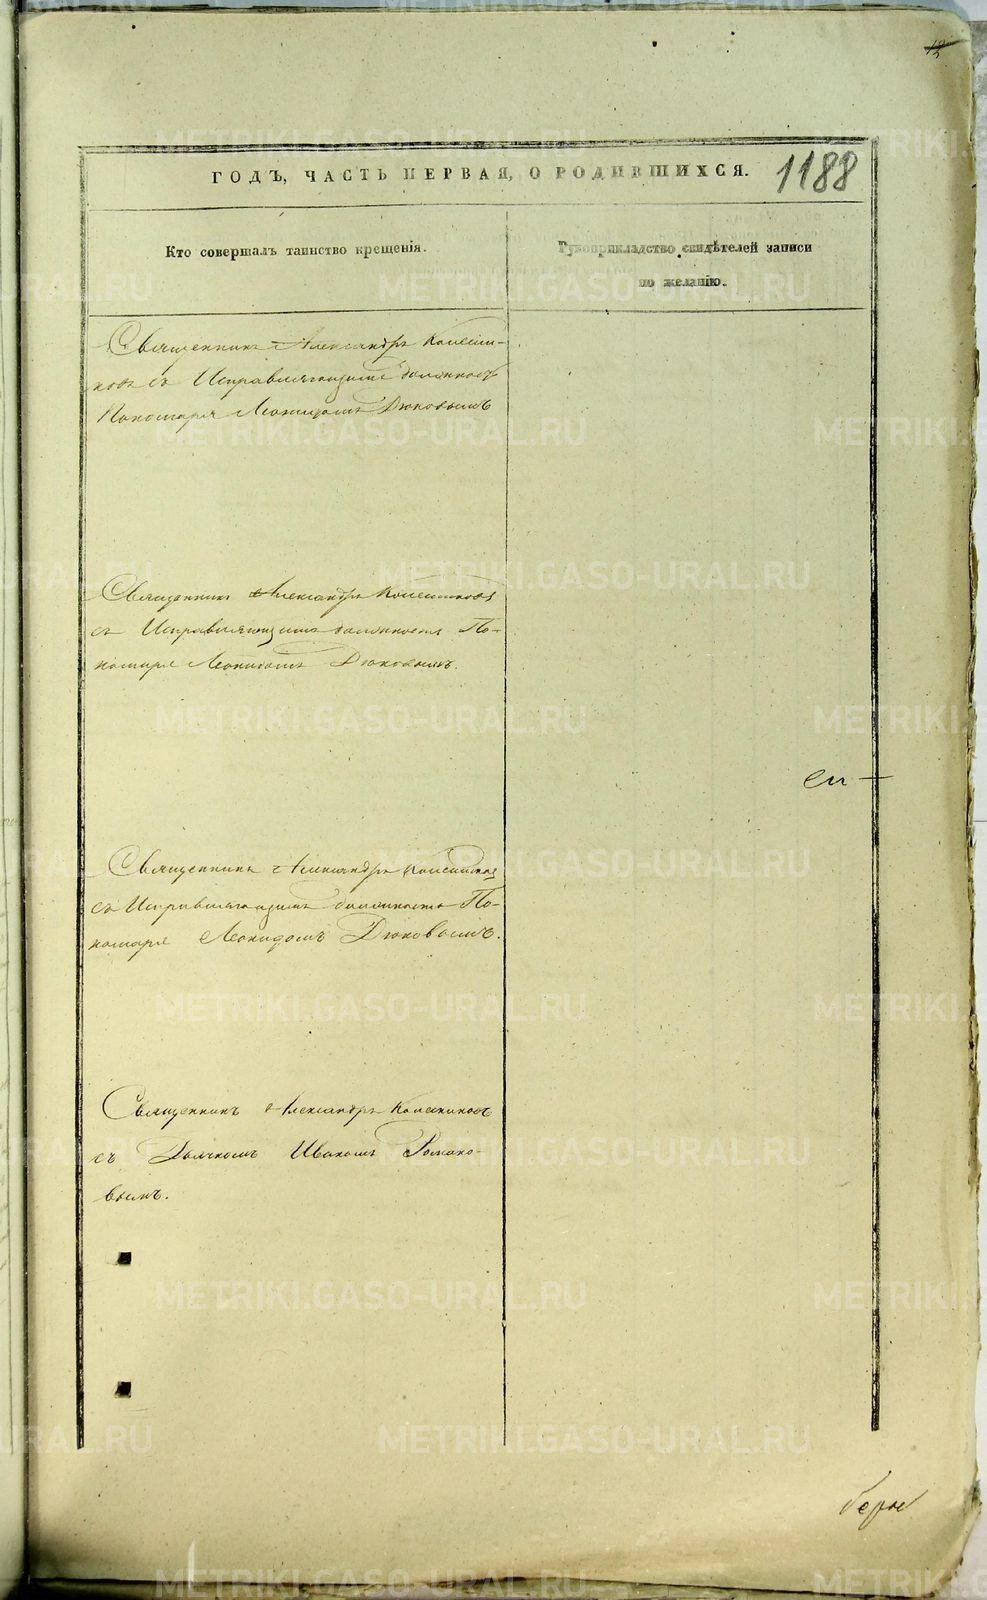 ГОДЪ, ЧАСТЬ ПЕРВАЯ, О РОДИВШИХСЯ.
1188
Кто совершалъ таинство крещенія.
Рукоприкладство свидѣтелей записи
по желанію.
Священникъ Александръ Колесни-
ковъ съ Исправляющимъ должность
Пономаря Леонидомъ Дюковымъ
Священникъ Александръ Колесниковъ
съ Исправляющимъ должность По-
номаря Леонидомъ Дюковымъ.
Священникъ Александръ Колесниковъ
съ Исправляющимъ должность По-
номаря Леонидомъ Дюковымъ.
Священникъ Александръ Колесниковъ
съ Дьячкомъ Иваномъ Романо-
вымъ.
METRIKI.GASO-URAL.RU